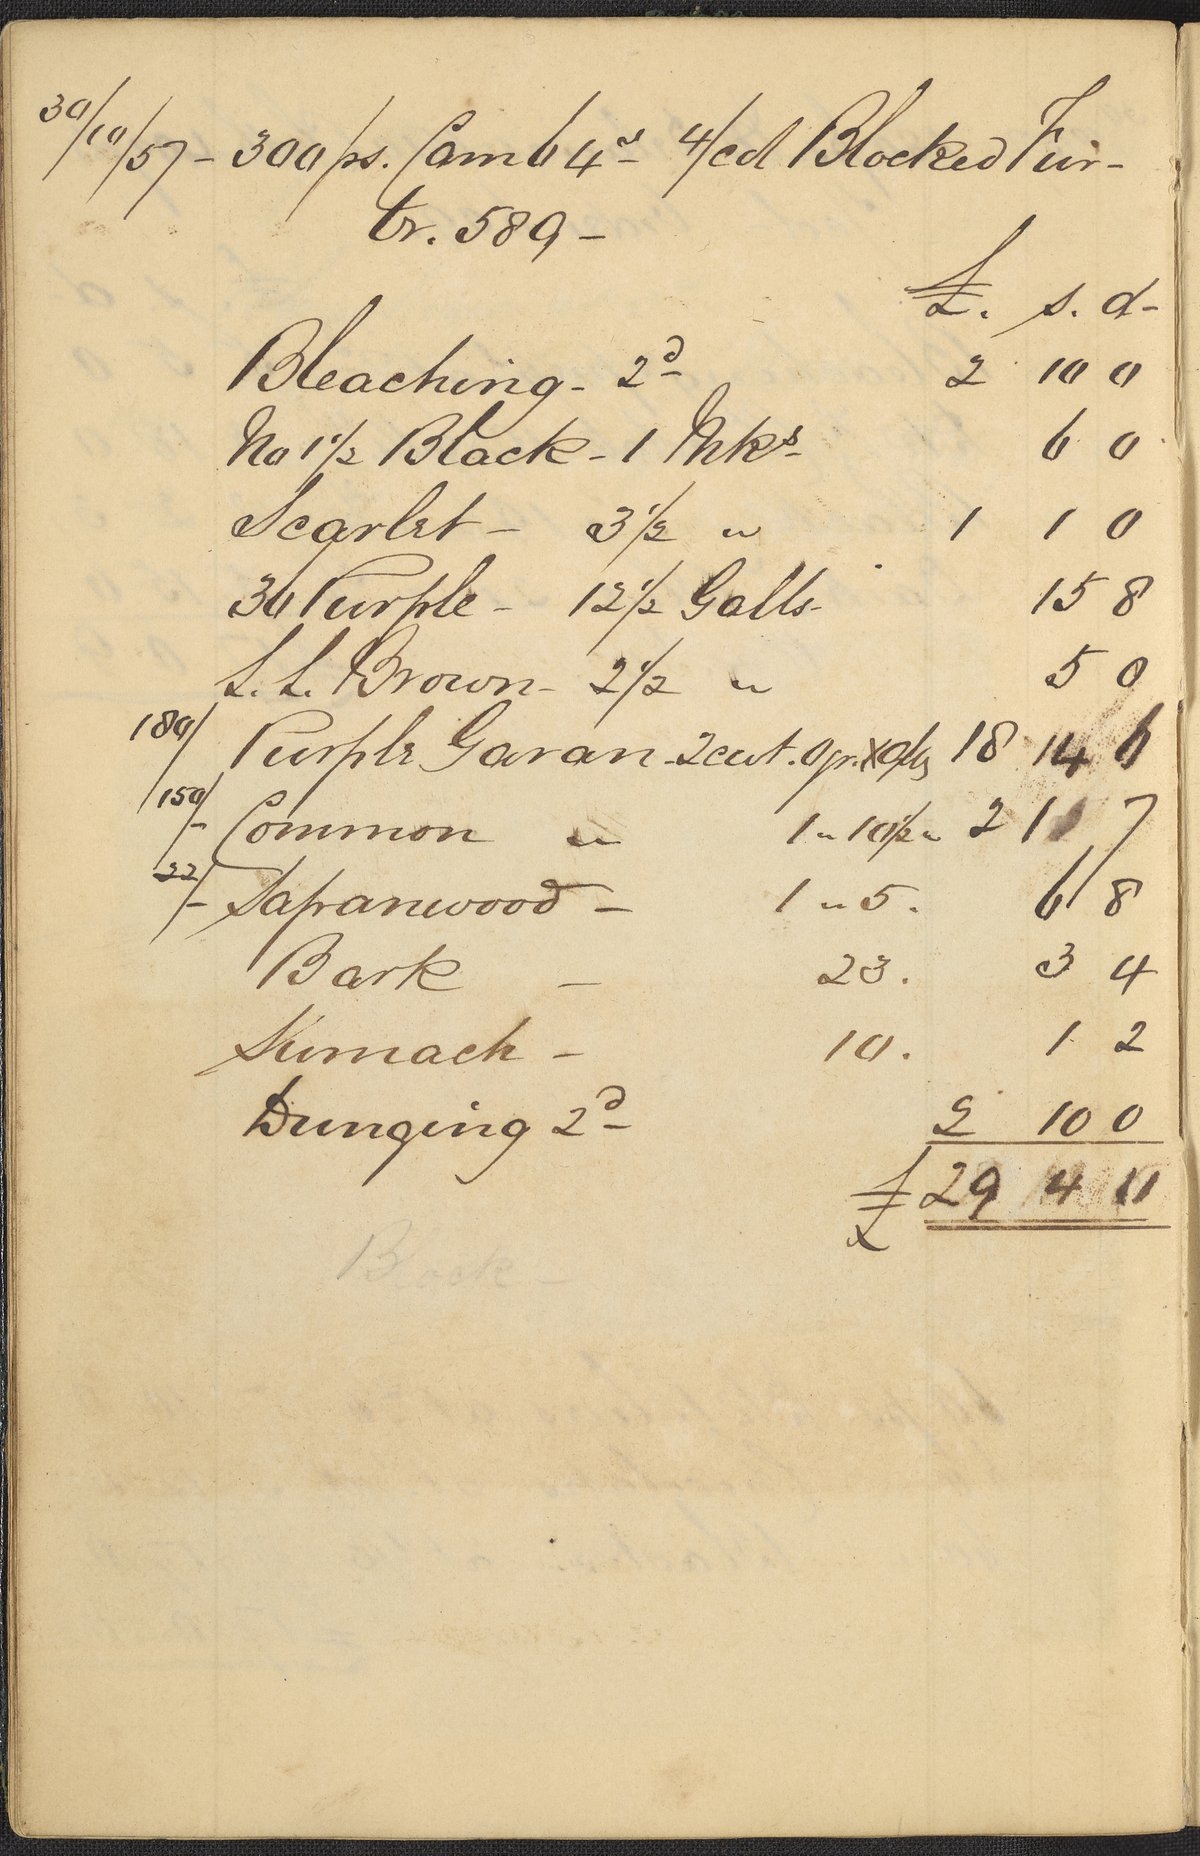 30/10/57 - 300 ps. Camb 4s 4/cd Blocked Fur-
tr. 589 -
£. s. d-
Bleaching - 2d 2 10 0
No 1½ Black - 1 Mks 6 0
Scarlet - 3½ " 1 1 0
30 Purple - 12½ Galls - 15 8
L.L. Brown - 2½ " 5 0
180/ Purple Garan - 2 cwt. 0 qr. 18 14 6
150/- Common " 1 " 10½ " 2 1 7
22/- Sapanwood - 1 " 5. 6 8
Bark - 23. 3 4
Sumach - 10. 1 2
Dunging 2d 2 10 0
£ 29 4 11